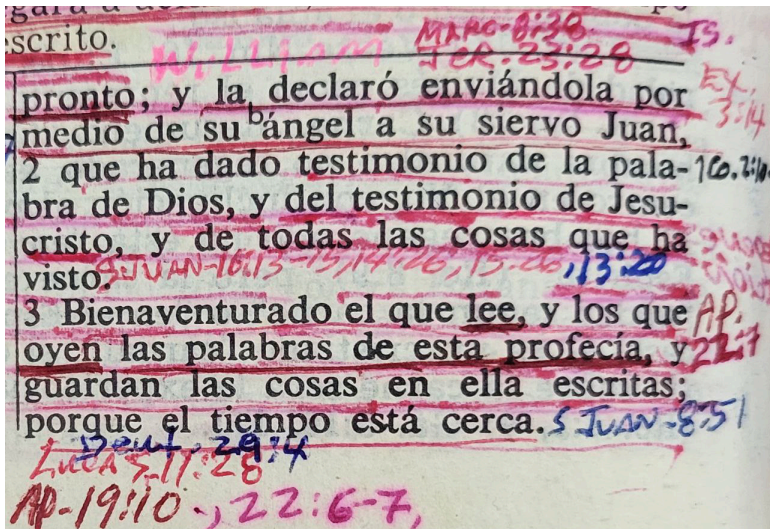 escrito.
MARC-8:38
IS.
WILLIAM
JER. 23:28
EX.
3:14
pronto; y la declaró enviándola por
medio de su ᵇángel a su siervo Juan,
2 que ha dado testimonio de la pala-
bra de Dios, y del testimonio de Jesu-
cristo, y de todas las cosas que ha
visto.
S.JUAN-16:13-15,14:26,15:26,13:20
3 Bienaventurado el que lee, y los que
AP.
oyen las palabras de esta profecía, y
22:7
guardan las cosas en ella escritas;
porque el tiempo está cerca.
S JUAN-8:51
Deut. 29:4
LUCAS.11:28
AP-19:10., 22:6-7,